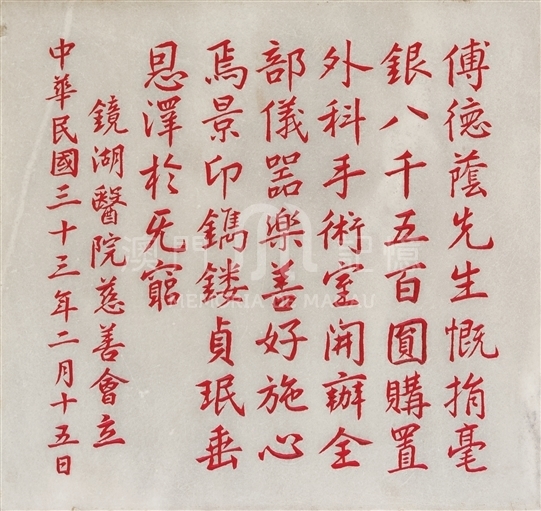 傅德蔭先生慨捐毫
銀八千五百圓購置
外科手術室開辦全
部儀器樂善好施心
焉景印鐫鏤貞珉垂
恩澤於无窮
鏡湖醫院慈善會立
中華民國三十三年二月十五日
澳門記憶
MEMORIA DE MACAU